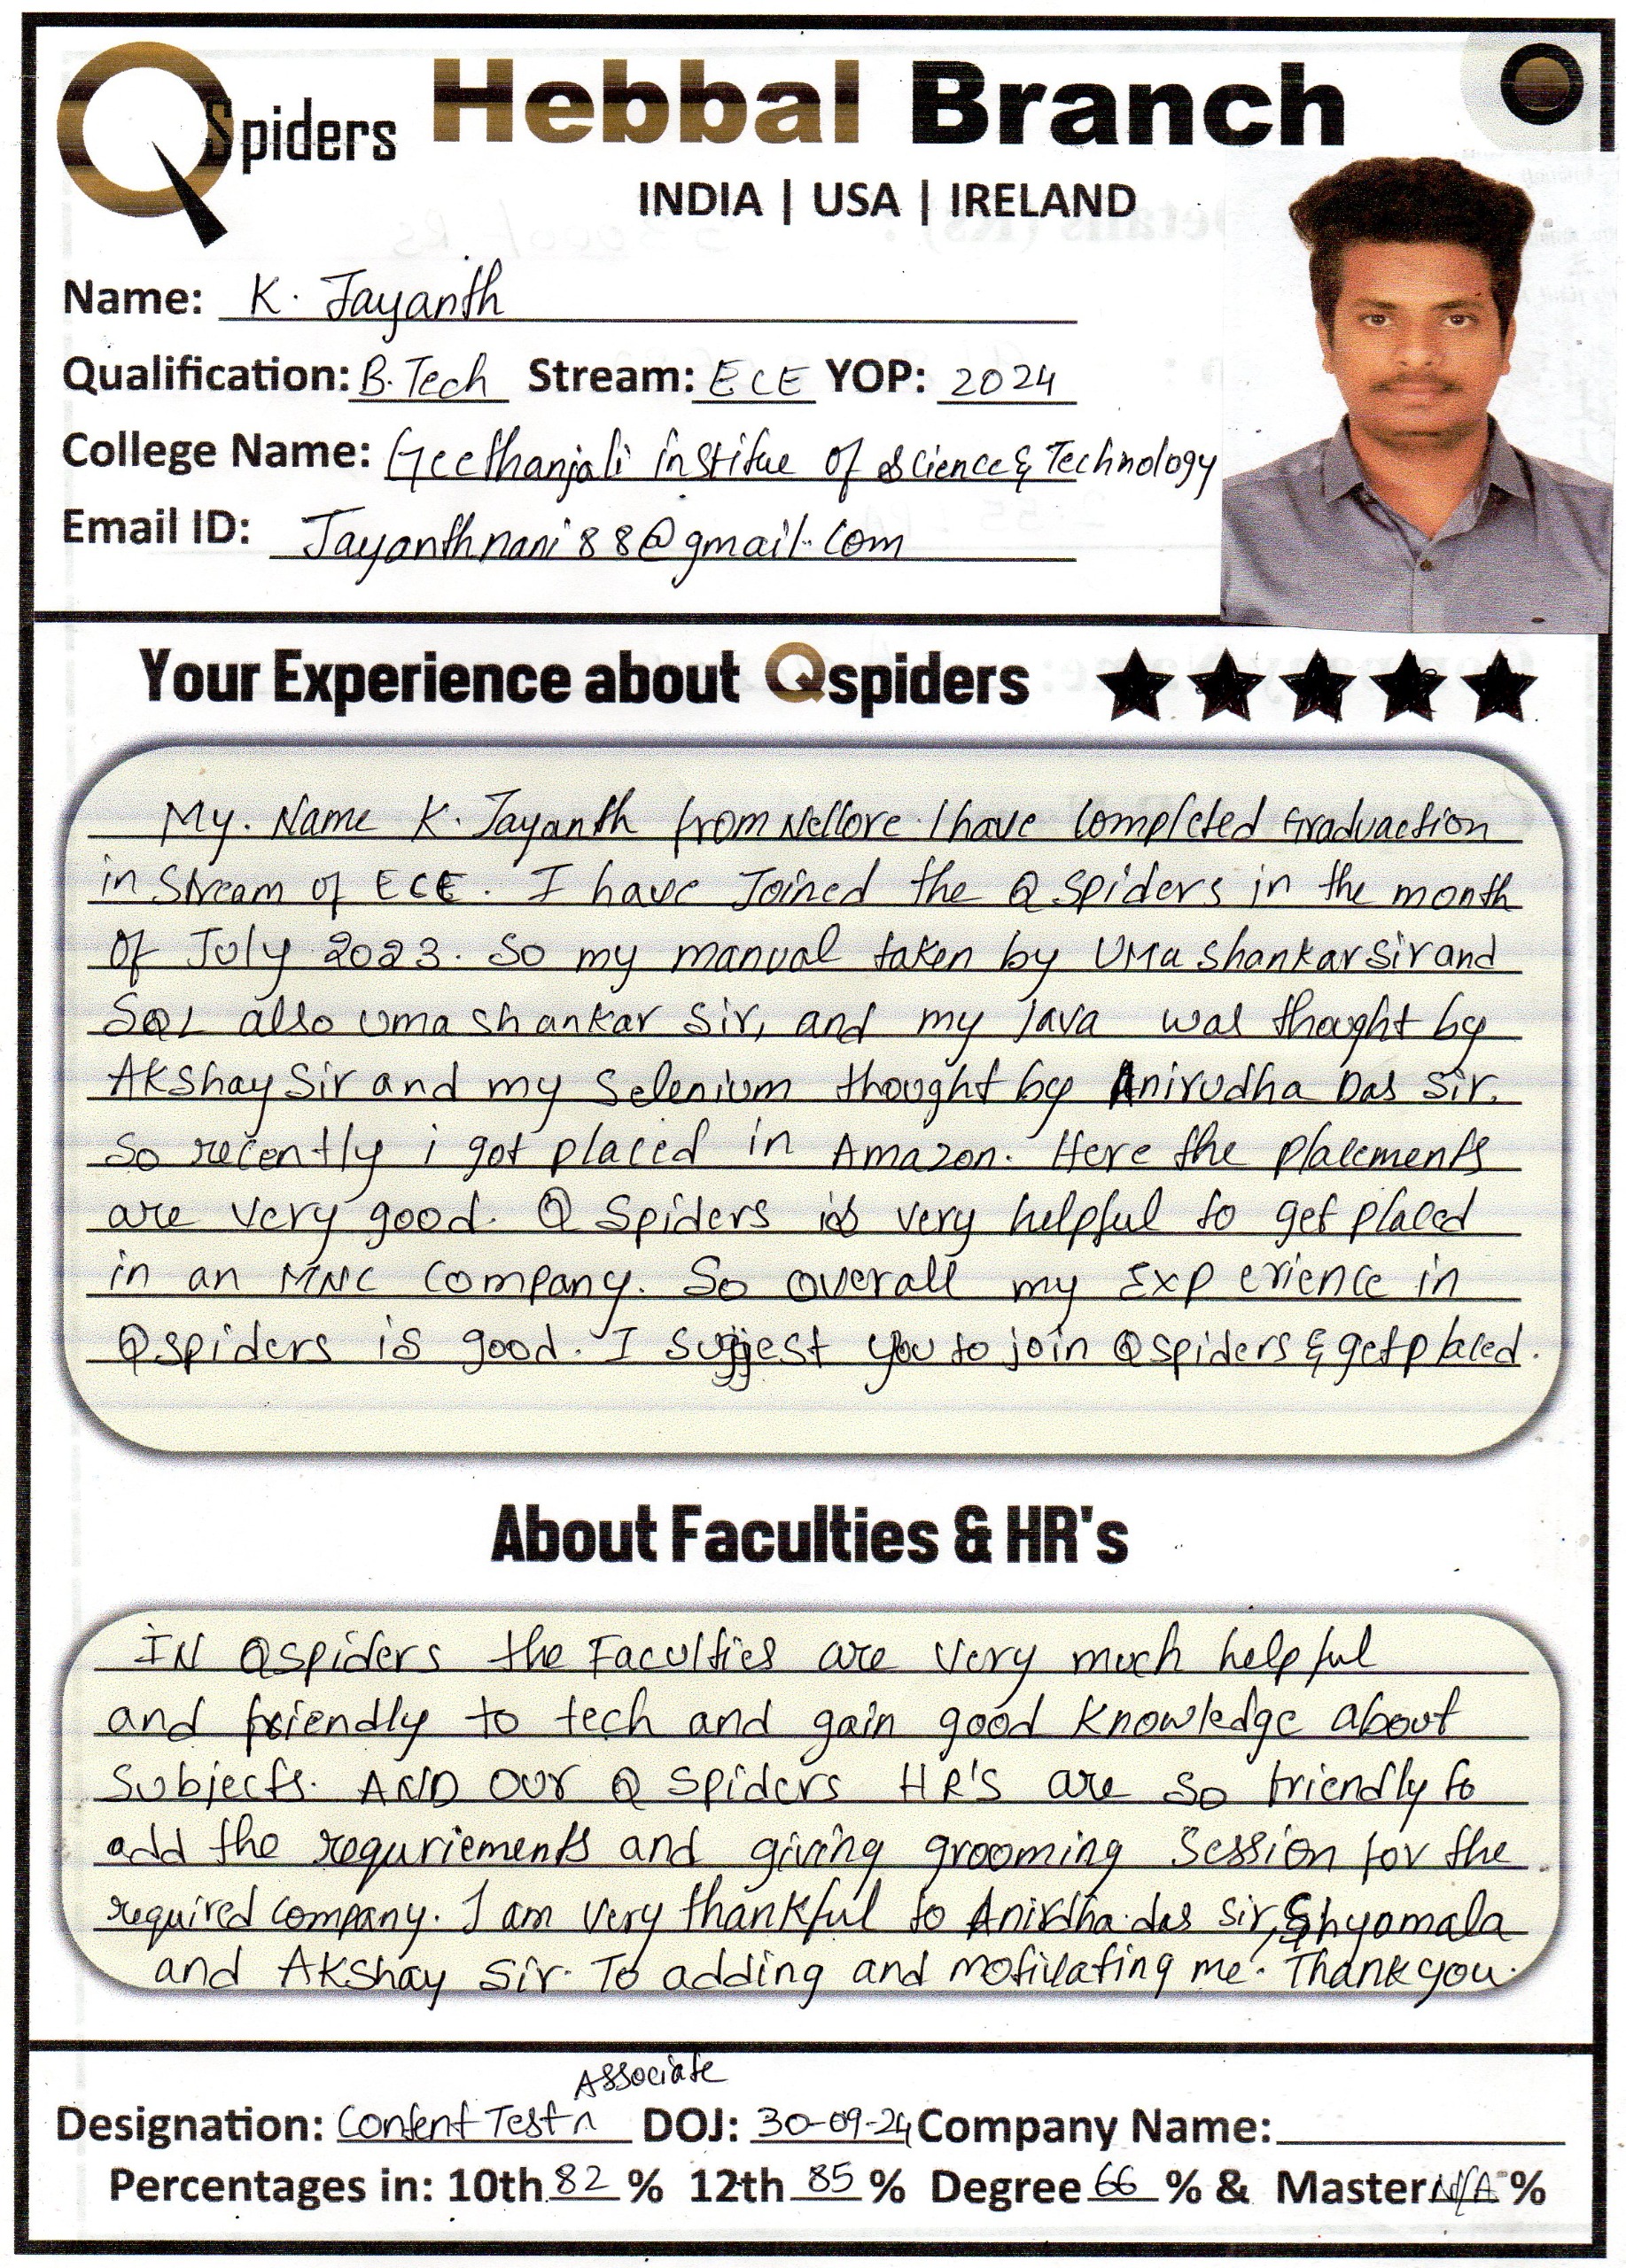 QSpiders Hebbal Branch
INDIA | USA | IRELAND
Name: K. Jayanth
Qualification: B.Tech Stream: ECE YOP: 2024
College Name: Geethanjali institue of science & Technology
Email ID: Jayanthnani88@gmail.com
Your Experience about Qspiders ★★★★★
My. Name K. Jayanth from Nellore. I have completed Graduaction
in Stream of ECE. I have Joined the Q Spiders in the month
of July 2023. So my manual taken by UMa shankar Sir and
SQL also uma shankar Sir, and my Java was thought by
AKshay Sir and my Selenium thought by Anirudha Das Sir.
So recently i got placed in Amazon. Here the placements
are very good. Q Spiders is very helpful to get placed
in an MNC Company. So overall my Experience in
Qspiders is good. I suggest you to join Qspiders & get placed.
About Faculties & HR's
IN Qspiders the Faculties are very much helpful
and friendly to tech and gain good knowledge about
Subjects. AND OUR Q Spiders HR'S are so friendly to
add the requriements and giving grooming Session for the
required company. I am very thankful to Anirdha.das Sir, Shyamala
and AKshay Sir. To adding and motivating me. Thank you.
Associate
Designation: Content Test ^ DOJ: 30-09-24 Company Name:
Percentages in: 10th 82 % 12th 85 % Degree 66 % & Master N/A %